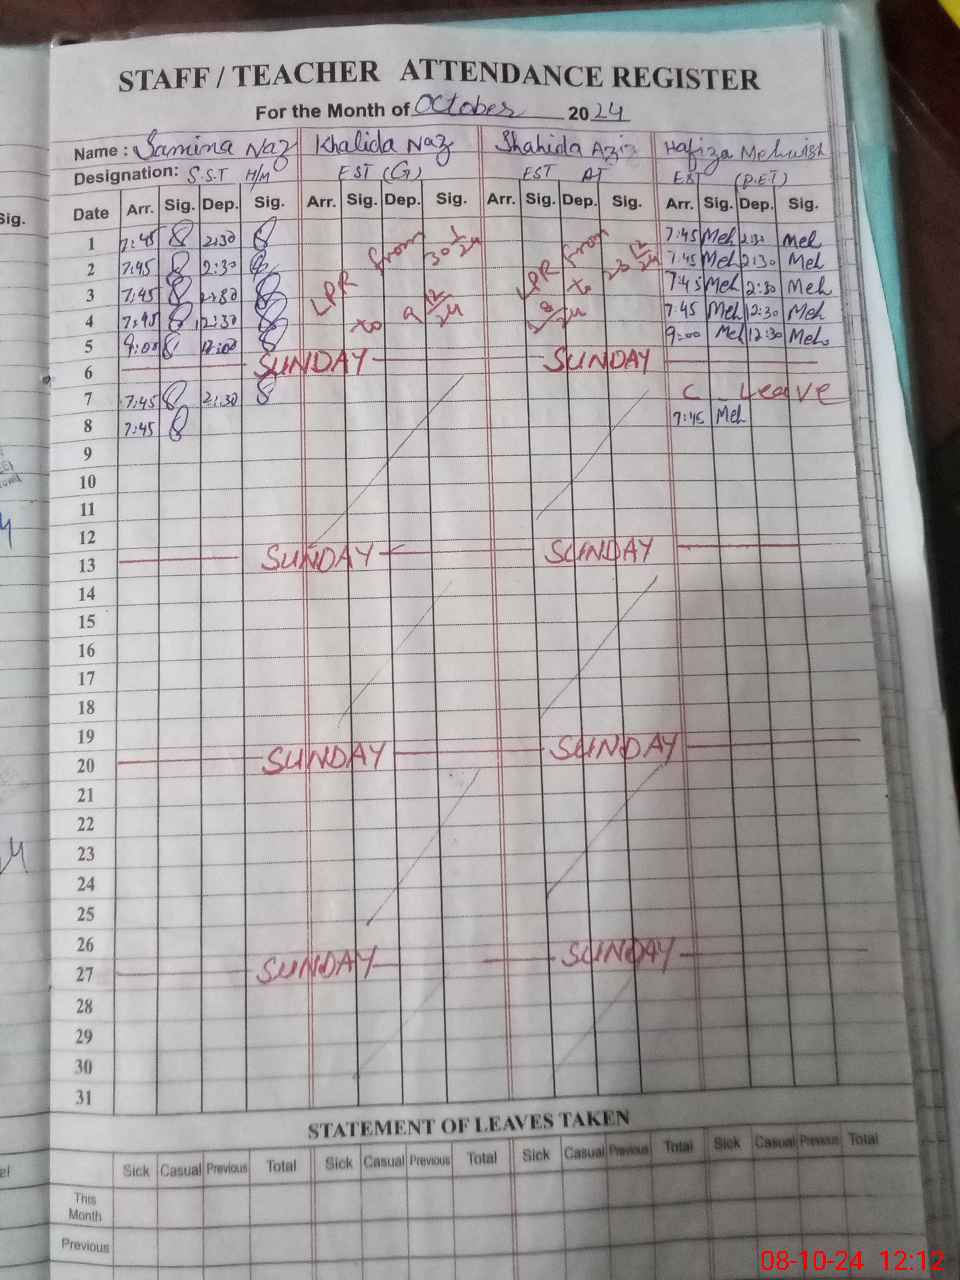 STAFF / TEACHER ATTENDANCE REGISTER
For the Month of October 2024
Name : Samina Naz Khalida Naz Shahida Aziz Hafiza Mehwish
Designation: S.S.T H/M EST (G) EST AT EST (P.E.T)
Date Arr. Sig. Dep. Sig. Arr. Sig. Dep. Sig. Arr. Sig. Dep. Sig. Arr. Sig. Dep. Sig.
1 7:45 2:30 7:45 Meh 2:30 Meh
2 7:45 2:30 7:45 Meh 2:30 Meh
3 7:45 2:30 7:45 Meh 2:30 Meh
4 7:45 2:30 7:45 Meh 2:30 Meh
5 9:00 12:00 9:00 Meh 12:30 Meh
LPR from
to
LPR from
to
6 SUNDAY SUNDAY
7 7:45 2:30 C Leave
8 7:45 7:45 Meh
9
10
11
12
13 SUNDAY SUNDAY
14
15
16
17
18
19
20 SUNDAY SUNDAY
21
22
23
24
25
26
27 SUNDAY SUNDAY
28
29
30
31
STATEMENT OF LEAVES TAKEN
Sick Casual Previous Total Sick Casual Previous Total Sick Casual Previous Total Sick Casual Previous Total
This Month
Previous
Sig.
08-10-24 12:12